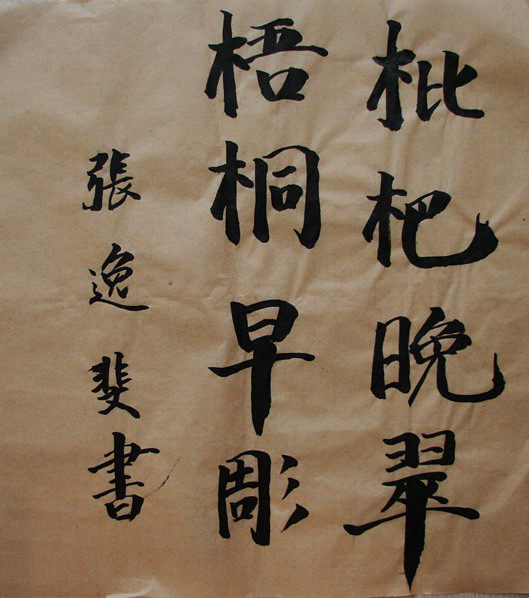 枇杷晚翠
梧桐早彫
張逸斐書